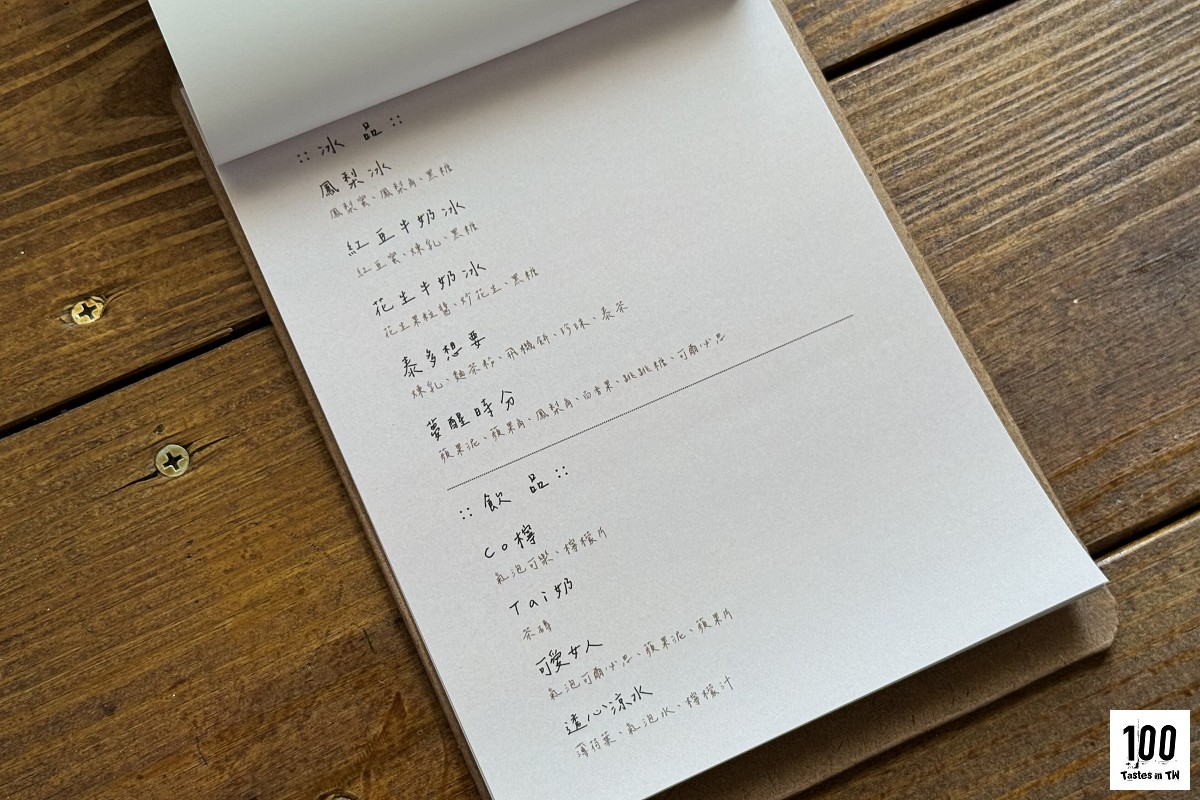 :: 冰 品 ::
鳳梨冰
鳳梨蜜、鳳梨角、黑糖
紅豆牛奶冰
紅豆蜜、煉乳、黑糖
花生牛奶冰
花生果粒醬、炒花生、黑糖
泰多想要
煉乳、麵茶粉、飛機餅、珍珠、泰茶
夢醒時分
蘋果泥、蘋果角、鳳梨角、百香果、跳跳糖、可爾必思
:: 飲 品 ::
Co檸
氣泡可樂、檸檬片
Tai奶
茶磚
可愛女人
氣泡可爾必思、蘋果泥、蘋果片
透心涼水
薄荷葉、氣泡水、檸檬汁
100
Tastes in TW